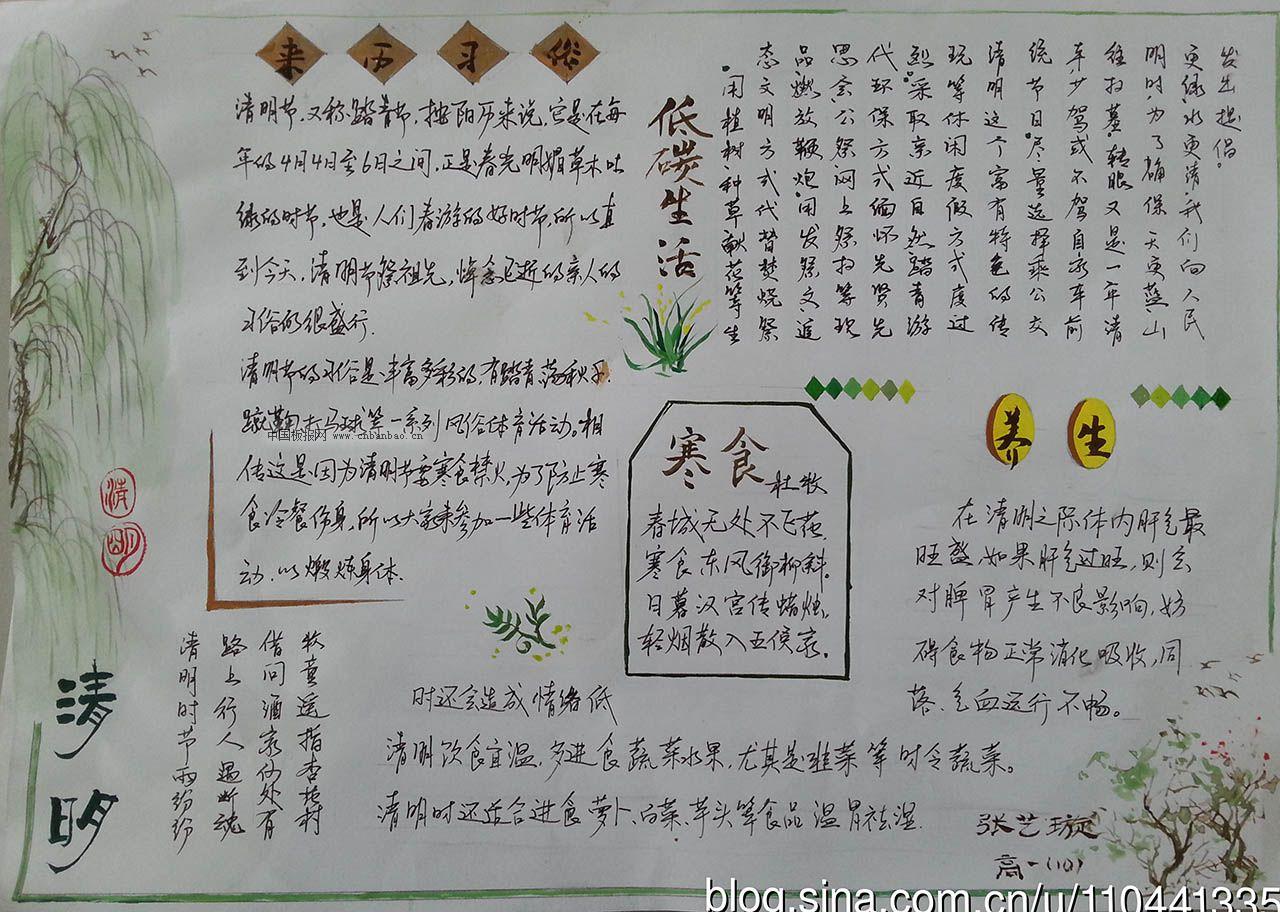 来历习俗
清明节，又称踏青节，按阳历来说，它是在每
年的4月4日至6日之间，正是春光明媚草木吐
绿的时节，也是人们春游的好时节，所以直
到今天，清明节祭祖先，悼念已逝的亲人的
习俗仍很盛行.
清明节的习俗是丰富多彩的，有踏青、荡秋千、
蹴鞠、打马球等一系列风俗体育活动。相
传这是因为清明节要寒食禁火，为了防止寒
食冷餐伤身，所以大家来参加一些体育活
动，以煅炼身体.
中国板报网 www.cnbanbao.cn
低碳生活
发出提倡。
更绿，水更清，我们向人民
明时，为了确保天更蓝，山
往扫墓，转眼又是一年清
车少驾或不驾自家车前
统节日。尽量选择乘公交
清明这个富有特色的传
玩等休闲度假方式度过
烈。采取亲近自然踏青游
代环保方式缅怀先贤先
思念，公祭网上祭扫等现
品，燃放鞭炮，用发祭文，追
态文明方式代替焚烧祭
•用植树、种草、献花等生
寒食
杜牧
春城无处不飞花，
寒食东风御柳斜。
日暮汉宫传蜡烛，
轻烟散入五侯家。
养生
在清明之际体内肝气最
旺盛，如果肝气过旺，则会
对脾胃产生不良影响，妨
碍食物正常消化吸收，同
时还会造成情绪低
落、气血运行不畅。
清明饮食宜温，多进食蔬菜水果，尤其是韭菜等时令蔬菜。
清明时还适合进食萝卜、白菜、芋头等食品温胃祛湿.
清明
清明
清明时节雨纷纷
路上行人遇断魂
借问酒家何处有
牧童遥指杏花村
张艺璇
高一(10)
blog.sina.com.cn/u/110441335